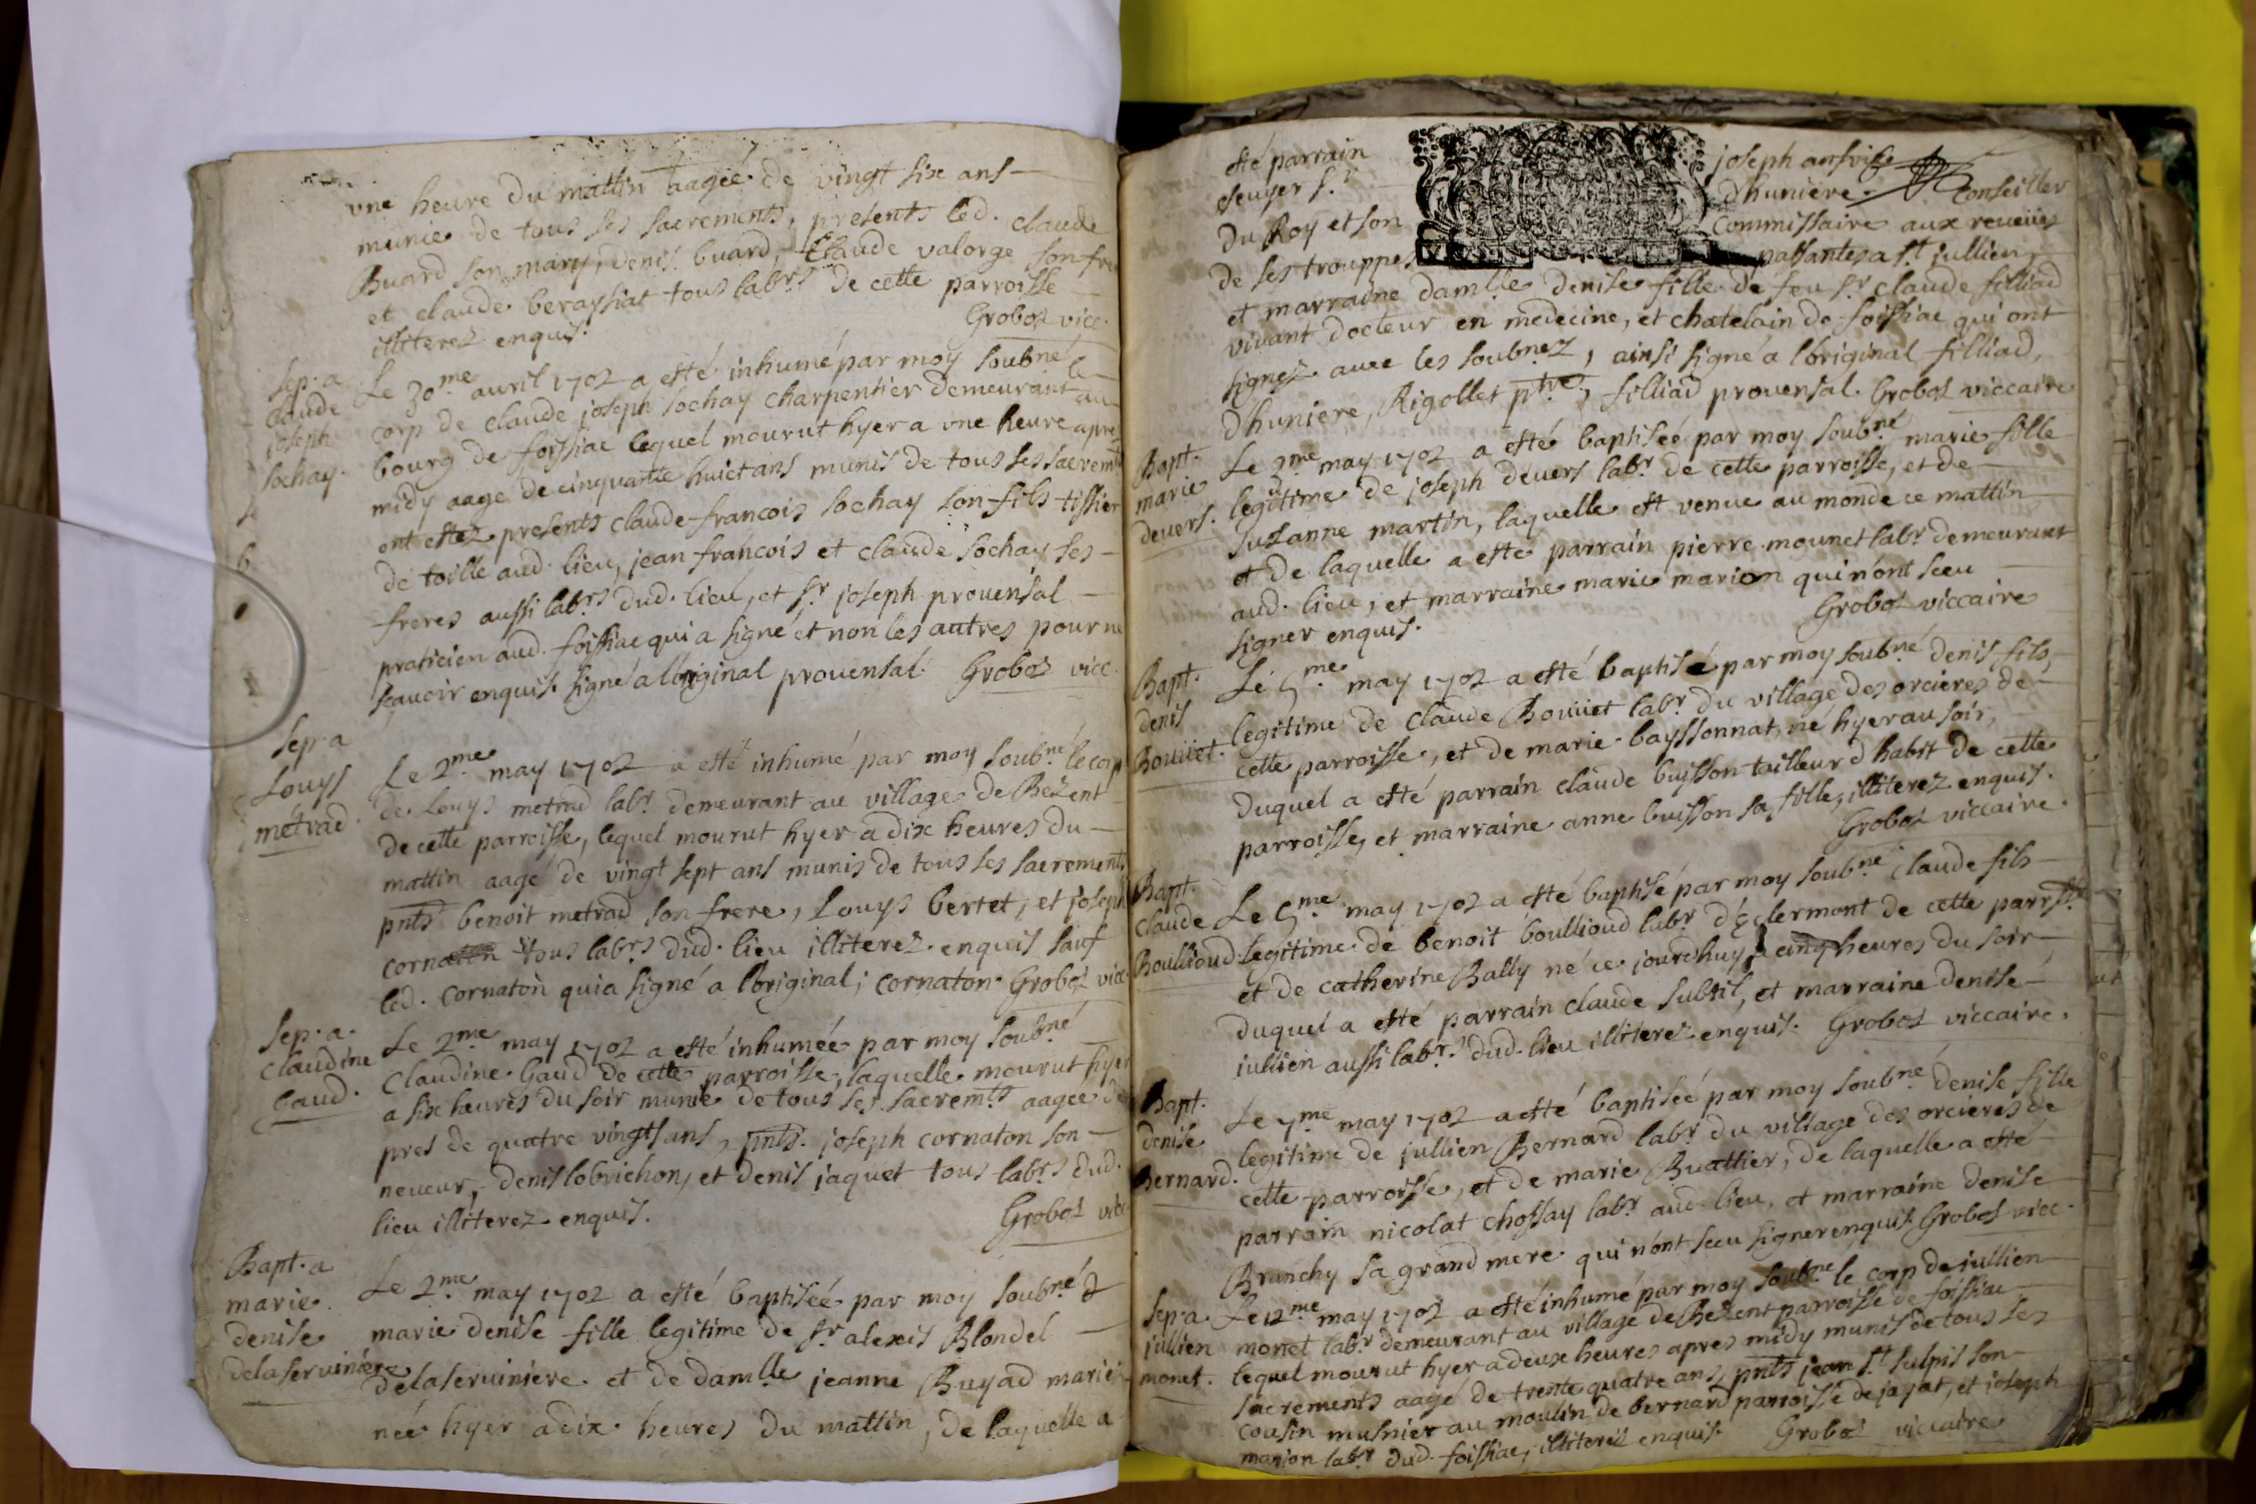 une heure du mattin aagée de vingt six ans
munie de tous ses sacrements, presents led. claude
Buard son mary, denis buard, Claude valorge son fre
et claude berayssiat tous labrs de cette parroisse
illiterez enquis. Grobos vicc.
sep. a
Claude
joseph
sochay.
Le 30me avril 1702 a esté inhumé par moy soubné le
corp de claude joseph sochay charpentier demeurant au
bourg de foissiac lequel mourut hyer a une heure apres
midy aagé de cinquante huict ans munis de tous ses sacremts
ont estez presents claude francois sochay son fils tissier
de toille aud. lieu, jean francois et claude sochay ses
freres aussi labrs dud. lieu, et sr joseph provensal
praticien aud. foissiac qui a signé et non les autres pour ne
sçavoir enquis. signé a loriginal provensal. Grobos vicc.
sep. a
Louys
métrad.
Le 2me may 1702 a esté inhumé par moy soubné le corp
de Louys metrad labr demeurant au village de Bezent
de cette parroisse, lequel mourut hyer a dix heures du
mattin aagé de vingt sept ans munis de tous ses sacrements
pnts benoit metrad son frere, Louys bertet, et joseph
cornaton tous labrs dud. lieu illiterez enquis sauf
led. cornaton qui a signé a loriginal; cornaton. Grobos vicc.
sep. a.
Claudine
Gaud.
Le 2me may 1702 a esté inhumée par moy soubné
Claudine Gaud de cette parroisse, laquelle mourut hyer
a six heures du soir munie de tous ses sacremts aagée de
pres de quatre vingts ans, pnts. joseph cornaton son
neveur, denis lobrichon, et denis jaquet tous labrs dud.
lieu illiterez enquis. Grobos vicc.
Bapt. a
marie
denise
delaserviniere
Le 2me may 1702 a esté baptiseé par moy soubné
marie denise fille legitime de sr alexis Blondel
delaserviniere et de damlle jeanne Buyad mariéz
née hyer a dix heures du mattin, de laquelle a
esté parrain joseph
escuyer s.r dhuniere conseiller
Du Roy et son Commissaire aux reveües
de ses trouppes passantes a st jullien,
et marraine damlle denise fille de feu sr claude filliad
vivant docteur en medecine, et chatelain de foissiac qui ont
signez avec les soubnez, ainsi signé a loriginal filliad,
Dhuniere, Rigollet ptre, filliad provensal. Grobos viccaire
Bapt.
marie
devers.
Le 3me may 1702 a esté baptiseé par moy soubné marie fille
legitime de joseph devers labr de cette parroisse, et de
suzanne martin, laquelle est venue au monde ce mattin
et de laquelle a esté parrain pierre mounet labr demeurant
aud. lieu, et marraine marie marion qui n'ont sceu
signer enquis. Grobos viccaire
Bapt.
denis
Bouuet.
Le 5me may 1702 a esté baptisé par moy soubné denis fils
legitime de claude Bouuet labr du village des orcieres de
cette parroisse, et de marie bayssonnat, né hyer au soir,
duquel a esté parrain claude buisson tailleur d habit de cette
parroisse, et marraine anne buisson sa fille, illiterez enquis.
Grobos viccaire.
Bapt.
claude
Boullioud
Le 5me may 1702 a esté baptisé par moy soubné claude fils
legitime de benoit boullioud labr de clermont de cette parrsse
et de catherine Bally né ce jourdhuy a cinq heures du soir
duquel a esté parrain claude subtil, et marraine denise
jullien aussi labrs dud. lieu illiterez enquis. Grobos viccaire.
Bapt.
denise
Bernard.
Le 7me may 1702 a esté baptiseé par moy soubné denise fille
legitime de jullien Bernard labr du village des orcieres de
cette parroisse, et de marie Buattier, de laquelle a esté
parrain nicolat chossay labr aud. lieu, et marraine denise
Brunchy sa grand mere qui n'ont sceu signer enquis Grobos vicc.
sep. a
jullien
monet.
Le 12me may 1702 a esté inhumé par moy soubné le corp de jullien
monet labr demeurant au village de Bezent parroisse de foissiac
lequel mourut hyer a deux heures apres midy munis de tous ses
sacrements aagé de trente quatre ans, pnts jean st sulpis son
cousin musnier au moulin de bernard parroisse de jayat, et joseph
marion labr dud. foissiac, illiterez enquis. Grobos viccaire